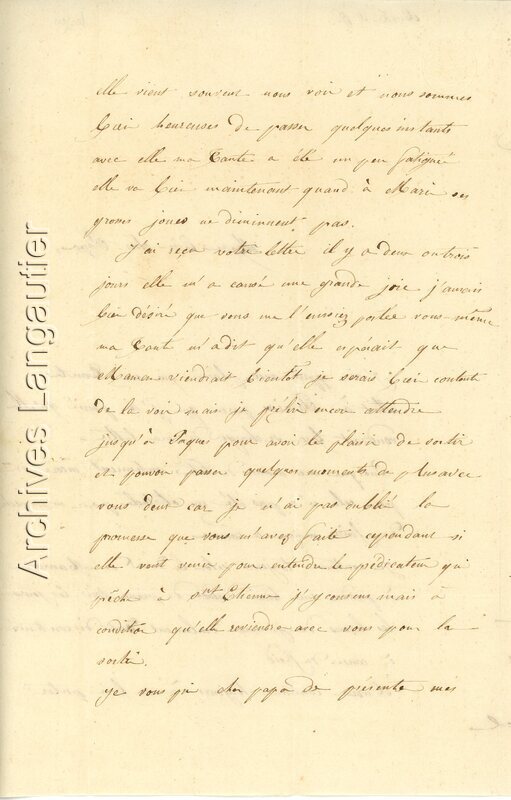 elle vient souvent nous voir et nous sommes
bien heureuses de passer quelques instants
avec elle ma Tante a été un peu fatigué
elle va bien maintenant quand à Marie ses
grosses joues ne diminuent pas.
J'ai reçu votre lettre il y a deux ou trois
jours elle m'a causé une grande joie j'aurais
bien désiré que vous me l'ensiez portée vous-même
ma Tante m'a dit qu'elle espérait que
Maman viendrait bientôt je serais bien contente
de la voir mais je préfère encore attendre
jusqu'à Pâques pour avoir le plaisir de sortir
et pouvoir passer quelques moments de plus avec
vous deux car je n'ai pas oublié la
promesse que vous m'avez faite cependant si
elle veut venir pour entendre le prédicateur qui
prêche à St Etienne j'y consens mais à
condition qu'elle reviendra avec vous pour la
sortie.
Je vous prie cher papa de présenter mes
Archives Langautier